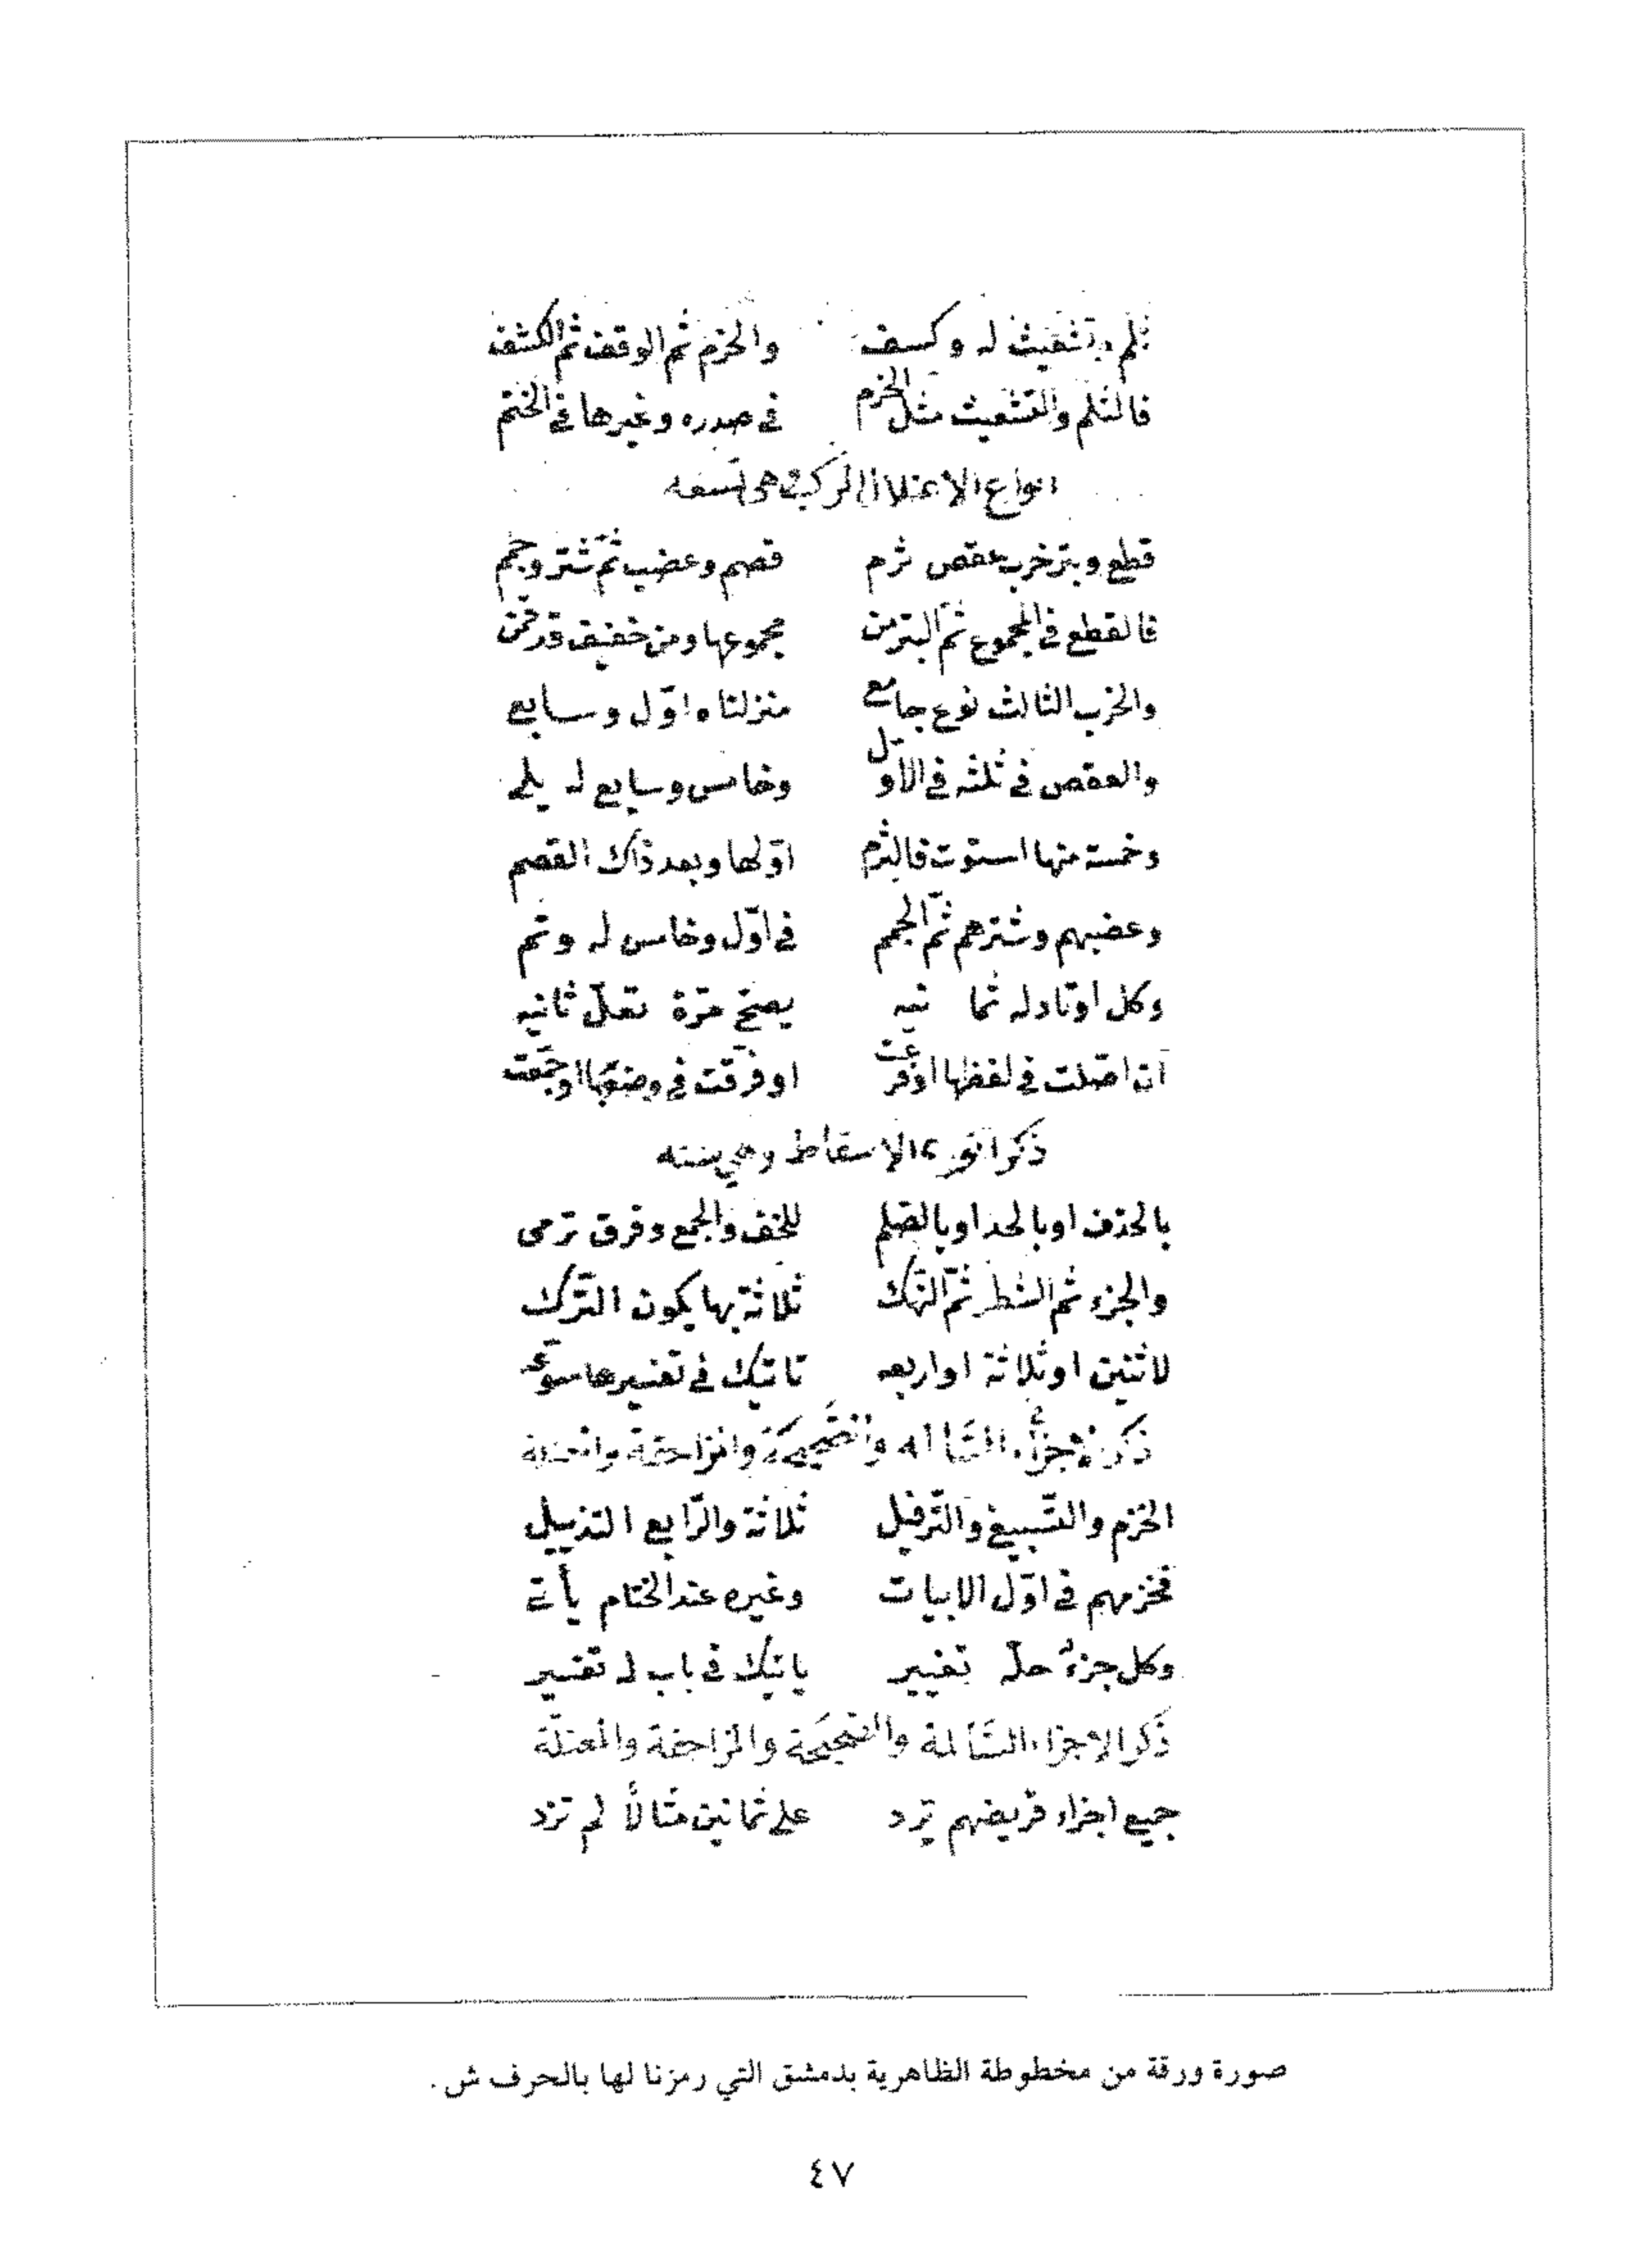 ثلم وتشعيث له وكسف والخرم ثم الوقف ثم الكشف
فالثلم والتشعيث مثل الخرم في صدره وغيرها في الختم
انواع الاعتلال المركب وهي تسعه
قطع وبتر خرب عقص ثرم قصم وعضب ثم شتر وجم
فالقطع في المجموع ثم البتر من مجموعها ومن خفيف قد زكن
والخرب الثالث نوع جامع منزلتاه اول وسابع
والعقص في ثلثه في الاول وخامس وسابع له يلي
وخمسة منها استوت فالثرم اولها وبعد ذاك القصم
وعضبهم وشترهم ثم الجمم في اول وخامس له وتم
وكل اوتاد له ثمانيه يصح مرة تعل ثانيه
ان اتصلت في لفظها او فرعت او فرقت في وضعها او جمعت
ذكر انواع الاسقاط وهي سته
بالحذف او بالحد او بالصلم للخف والجمع وفرق ترمى
والجزء ثم الشطر ثم النهك ثلاثة بها يكون الترك
لاثنين او ثلاثة او اربعه تاتيك في تفسيرها موسعه
ذكر الاجزاء السالمه والصحيحة والمزاحفة والمعتلة
الخزم والتسبيغ والترفيل ثلاثة والرابع التذييل
فخزمهم في اول الابيات وغيره عند الختام يأتي
وكل جزء حله تغيير ياتيك في باب له تفسير
ذكر الاجزاء السالمة والصحيحة والمزاحفة والمعتلة
جميع اجزاء قريضهم ترد على ثمانين مثالا لم تزد
صورة ورقة من مخطوطة الظاهرية بدمشق التي رمزنا لها بالحرف ش .
٤٧